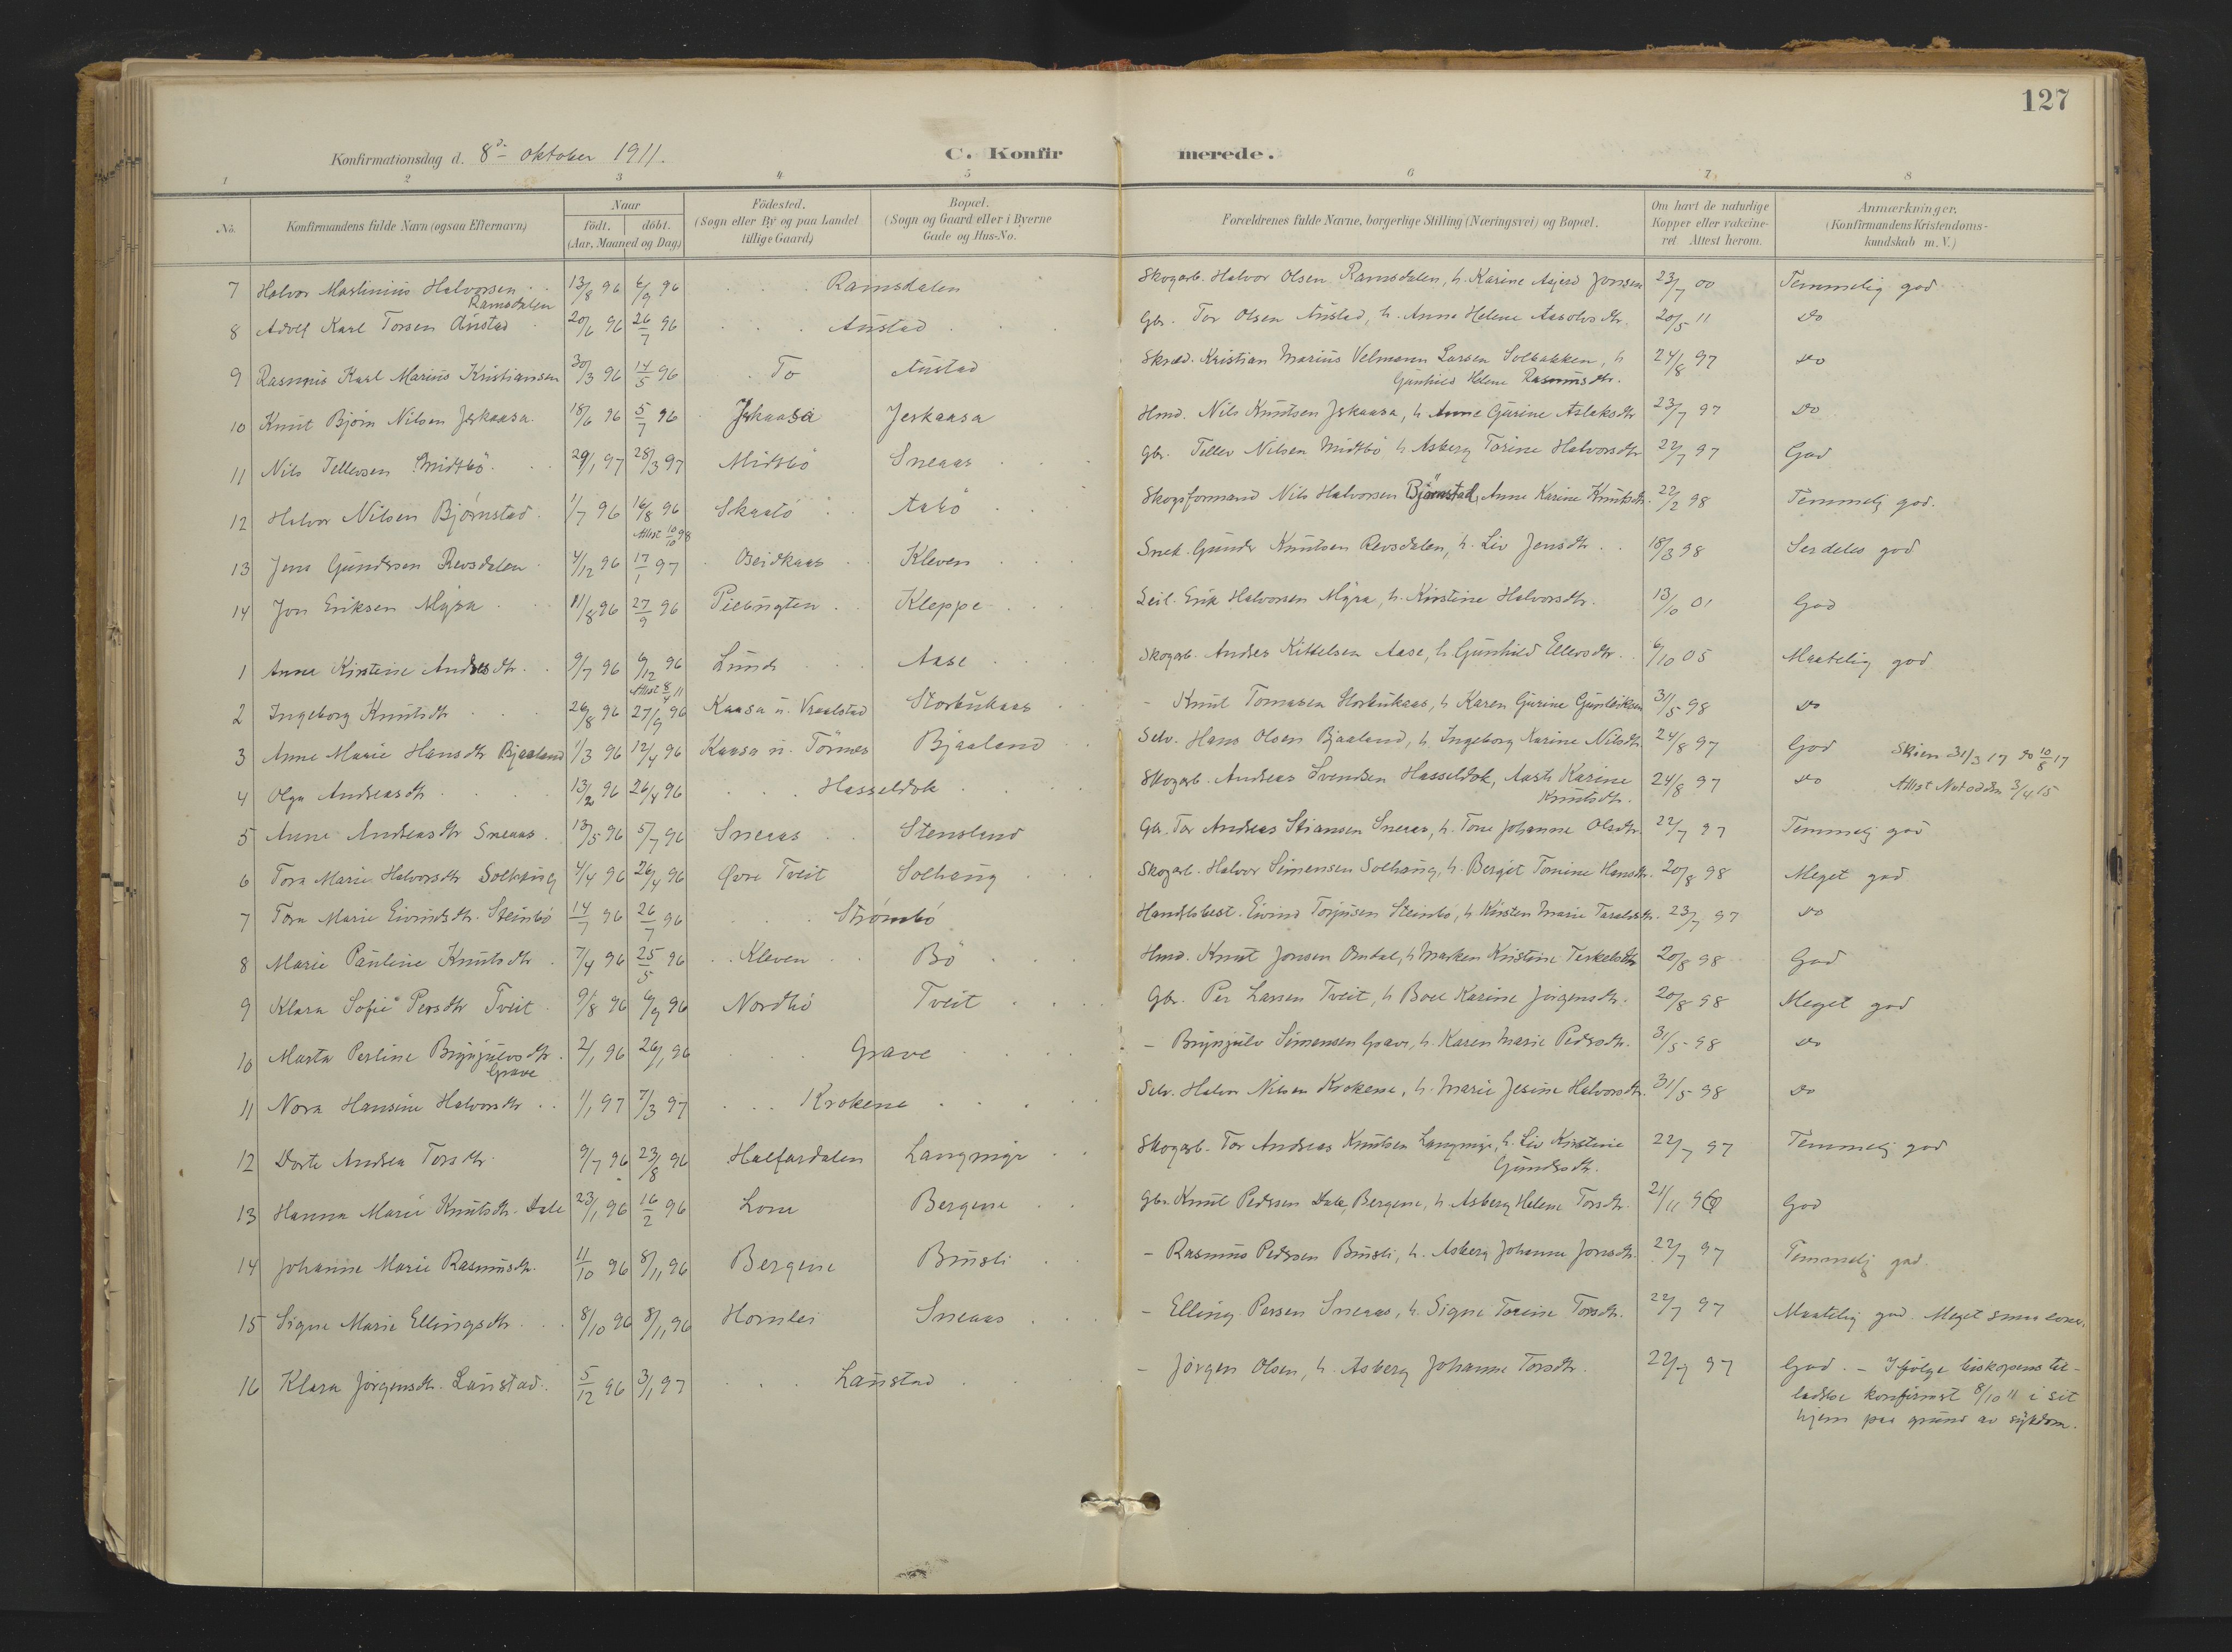 127
Konfirmationsdag d. 8de oktober 1911.
C. Konfirmerede.
1 2 3 4 5 6 7 8
No. Konfirmandens fulde Navn (ogsaa Efternavn) Naar födt. döbt. (Aar, Maaned og Dag) Födested. (Sogn eller By og paa Landet tillige Gaard) Bopæl. (Sogn og Gaard eller i Byerne Gade og Hus-No. Forældrenes fulde Navne, borgerlige Stilling (Næringsvei) og Bopæl. Om havt de naturlige Kopper eller vakcineret. Attest herom. Anmærkninger, (Konfirmandens Kristendomskundskab m. V.)
7 Halvor Martinius Halvorsen 13/8 96 6/9 96 Ramsdalen Skogarb. Halvor Olsen Ramsdalen, h. Karine Asjerd Jonsen 23/7 00 Temmelig god
Ramsdalen
8 Adolf Karl Torsen Austad 20/6 96 26/7 96 Austad Gbr. Tor Olsen Austad, h. Anne Helene Aasolvsdtr. 20/5 11 do
9 Rasmus Karl Marius Kristiansen 30/3 96 14/5 96 To Austad Skræd. Kristian Marius Velmann Larsen Solbakken, h 24/8 97 do
Gunhild Helene Rasmusdtr.
10 Knut Bjørn Nilsen Jeskaasa 18/6 96 5/7 96 Jeskaasa Jeskaasa Hmd. Nils Knutsen Jeskaasa, h Anne Gurine Aslaksdtr 23/7 97 do
11 Nils Tellevsen Midtbö 29/1 97 28/3 97 Midtbö Sneaas Gbr. Tellev Nilsen Midtbö h Asberg Torine Halvorsdtr 22/7 97 God
12 Halvor Nilsen Björnstad 1/7 96 16/8 96 Skaatö Aabö Skogsformand Nils Halvorsen Björnstad, Anne Karine Knutsdtr. 22/2 98 Temmelig god.
Attest 10/10 98
13 Jens Gundersen Revsdalen 4/12 96 17/1 97 Oseidkaas Kleven Snek. Gunder Knutsen Revsdalen, h. Liv Jensdtr. 18/3 98 Serdeles god
14 Jon Eriksen Myra 11/8 96 27/9 96 Kleppe Seil. Erik Halvorsen Myra, h. Kirstine Halvorsdtr. 13/10 01 God
1 Anna Kirstine Andersdtr. 9/7 96 6/12 96 Lunde Aase Skogarb. Anders Kittelsen Aase, h. Gunhild Ellevsdtr. 6/10 05 Maatelig god
Attest 8/4 11
2 Ingeborg Knutsdtr 26/8 96 27/9 96 Kaasa u. Vraalstad Storbukaas - Knut Tomasen Storbukaas, h Karen Gurine Gunleiksen 31/5 98 do
3 Anne Marie Hansdtr Bjaaland 1/3 96 12/4 96 Kaasa u. Törnes Bjaaland Selv. Hans Olsen Bjaaland, h. Ingeborg Karine Nilsdtr. 24/8 97 God Skien 31/3 17 do 10/8 17
4 Olga Andreasdtr 13/2 96 26/4 96 Hasseldok Skogarb. Andreas Svendsen Hasseldok, Aaste Karine 24/8 97 do Attest Notodden 3/4 15
Knutsdtr.
5 Anne Andreasdtr Sneaas 13/5 96 5/7 96 Sneaas Stensland Gbr. Tor Andreas Stiansen Sneaas, h. Tone Johanne Olsdtr. 22/7 97 Temmelig god
6 Tora Marie Halvorsdtr Solhaug 4/4 96 26/4 96 Øvre Tveit Solhaug Skogarb. Halvor Simensen Solhaug, h. Bergit Tomine Hansdtr. 20/8 98 Meget god
7 Tora Marie Eivindsdtr. Steinbö 14/7 96 26/7 96 Strømbö Handlsbest. Eivind Torjusen Steinbö, h. Kirsten Marie Taraldsdtr. 23/7 97 do
8 Marie Pauline Knutsdtr 7/4 96 25/5 96 Kleven Bö Hmd. Knut Jonsen Omdal, h Marken Kristine Terkelsdtr 20/8 98 God
9 Klara Sofie Persdtr Tveit 9/8 96 6/9 96 Nordbö Tveit Gbr. Per Larsen Tveit, h Boel Karine Jørgensdtr. 20/8 98 Meget god
10 Marta Perline Brynjulvsdtr. 2/1 96 26/1 96 Grave - Brynjulv Simensen Grave, h. Karen Marie Pedersdtr. 31/5 98 do
Grave
11 Nora Hansine Halvorsdtr 1/1 97 7/3 97 Krokene Selv. Halvor Nilsen Krokene, h. Marie Jesine Halvorsdtr. 31/5 98 do
12 Dorte Andrea Torsdtr. 9/7 96 23/8 96 Halfardalen Langmyr Skogarb. Tor Andreas Knutsen Langmyr, h. Liv Kirstine 22/7 97 Temmelig god
Gundersdtr.
13 Hanna Marie Knutsdtr. Dale 23/1 96 16/2 96 Lone Bergene Gbr. Knut Pedersen Dale, Bergene, h. Asberg Helene Torsdtr. 21/11 96 God
14 Johanne Marie Rasmusdtr. 11/10 96 8/11 96 Bergene Busli - Rasmus Pedersen Busli, h. Asberg Johanne Jonsdtr. 22/7 97 Temmelig god.
15 Signe Marie Ellingsdtr. 8/10 96 8/11 96 Hornlei Sneaas - Elling Persen Sneaas, h. Signe Torine Torsdtr. 22/7 97 Maatelig god. Meget smaa evner.
16 Klara Jörgensdtr. Laustad 5/12 96 3/1 97 Laustad - Jörgen Olsen, h. Asberg Johanne Torsdtr. 22/7 97 God. - Ifølge biskopens til-
ladelse konfirmert 8/10 11 i sit
hjem paa grund av sykdom.